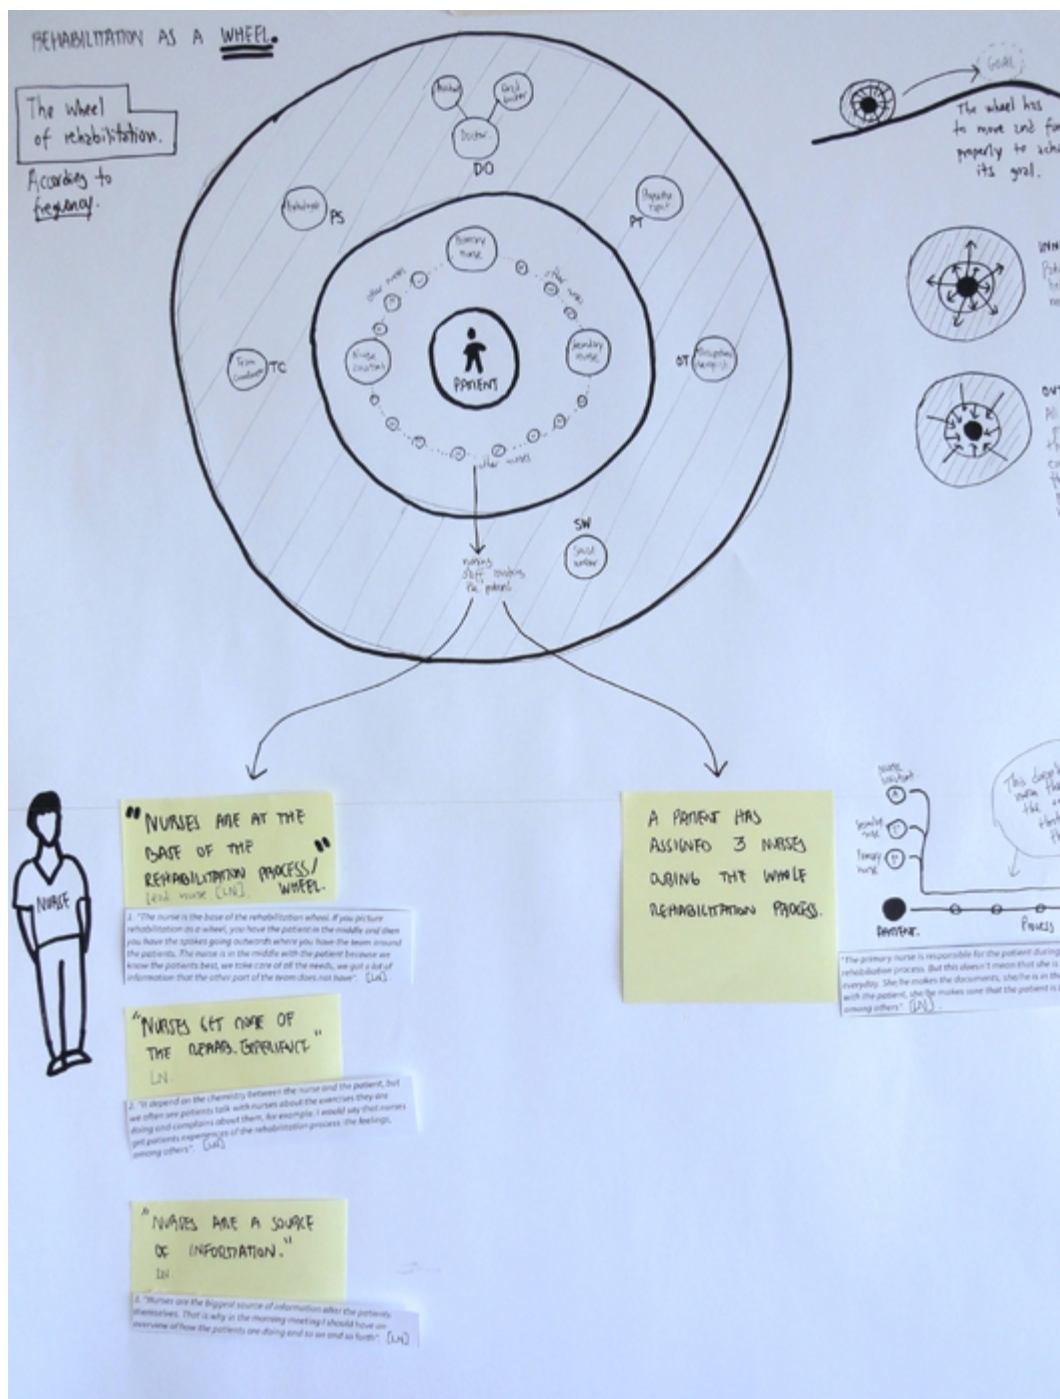 REHABILITATION AS A WHEEL.
The wheel
of rehabilitation.
According to
frequency.
Doctor
DO
PS
PT
Primary
nurse
other nurses
other nurses
Nurse
assistant
Secondary
nurse
PATIENT
TC
OT
Occupational
therapist
other nurses
SW
Social
worker
nursing
staff
the patient
GOAL
The wheel has
to move and
properly to
its goal.
NURSE
"NURSES ARE AT THE
BASE OF THE
REHABILITATION PROCESS/"
WHEEL.
lead nurse [LN].
1. "The nurse is the base of the rehabilitation wheel. If you picture
rehabilitation as a wheel, you have the patient in the middle and then
you have the spokes going outwards where you have the team around
the patients. The nurse is in the middle with the patient because we
know the patients best, we take care of all the needs, we got a lot of
information that the other part of the team does not have". [LN]
"NURSES GET MORE OF
THE REHAB. EXPERIENCE"
LN.
2. "It depend on the chemistry between the nurse and the patient, but
we often see patients talk with nurses about the exercises they are
doing and complains about them, for example. I would say that nurses
get patients experiences of the rehabilitation process: the feelings,
among others". [LN]
"NURSES ARE A SOURCE
OF INFORMATION."
LN
3. "Nurses are the biggest source of information after the patients
themselves. That is why in the morning meeting I should have an
overview of how the patients are doing and so on and so forth". [LN]
A PATIENT HAS
ASSIGNED 3 NURSES
DURING THE WHOLE
REHABILITATION PROCESS.
nurse
assistant
Secondary
nurse
Primary
nurse
PATIENT.
Process
This doesn't
"The primary nurse is responsible for the patient during
rehabiliation process. But this doesn't mean that she is
everyday. She/he makes the documents, she/he is in the
with the patient, she/he makes sure that the patient is
among others". [LN].